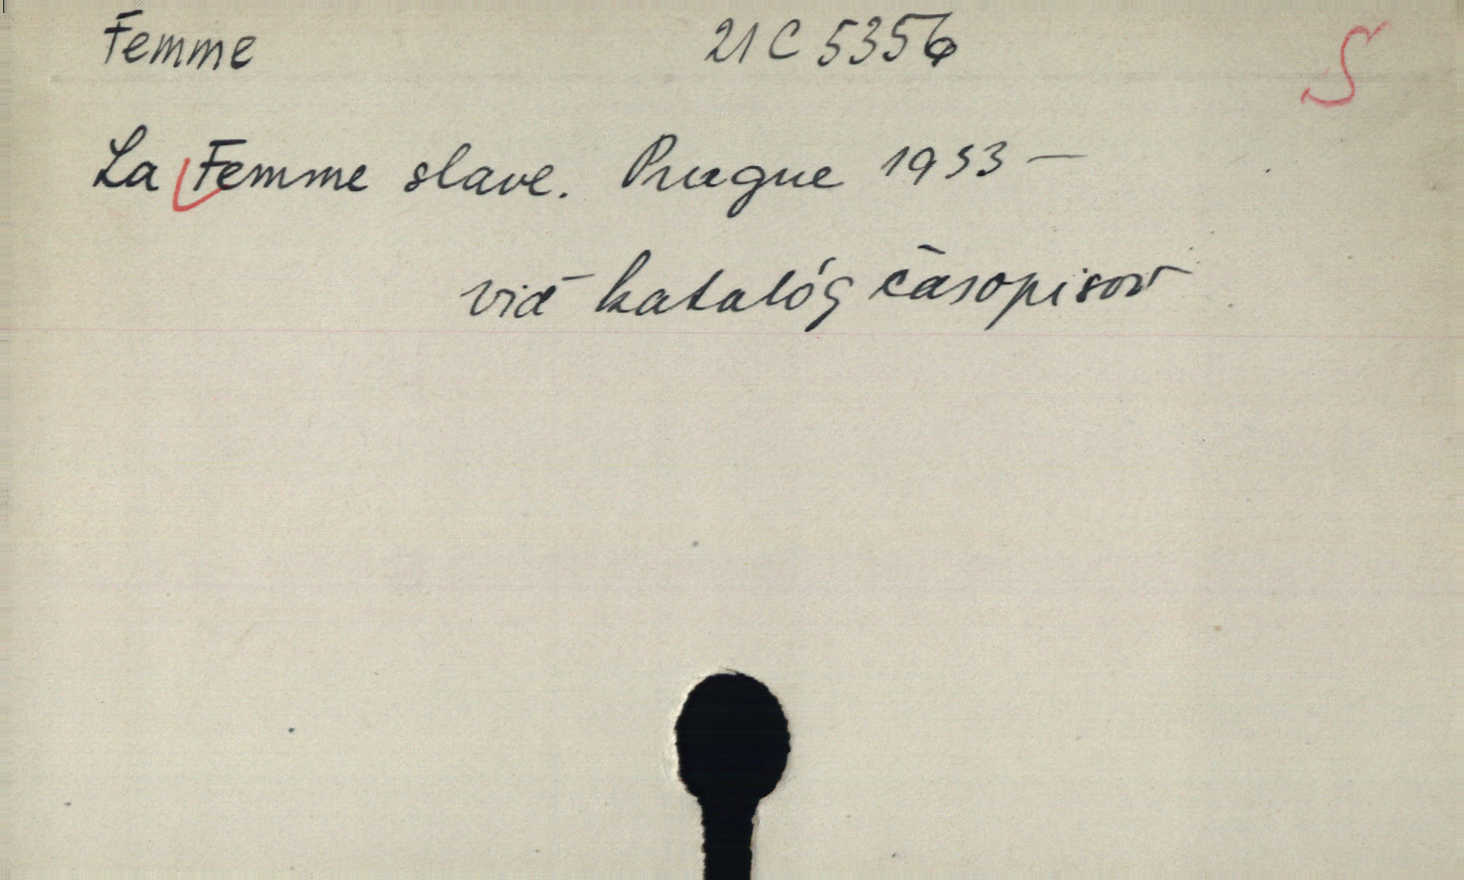 Femme 21 C 5356 S
La Femme slave. Prague 1933 —
viď katalóg časopisov